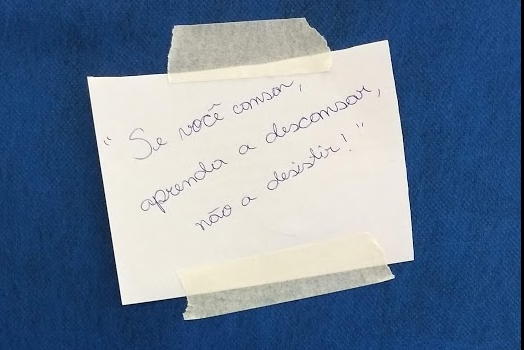 "Se você cansar,
aprenda a descansar,
não a desistir!"